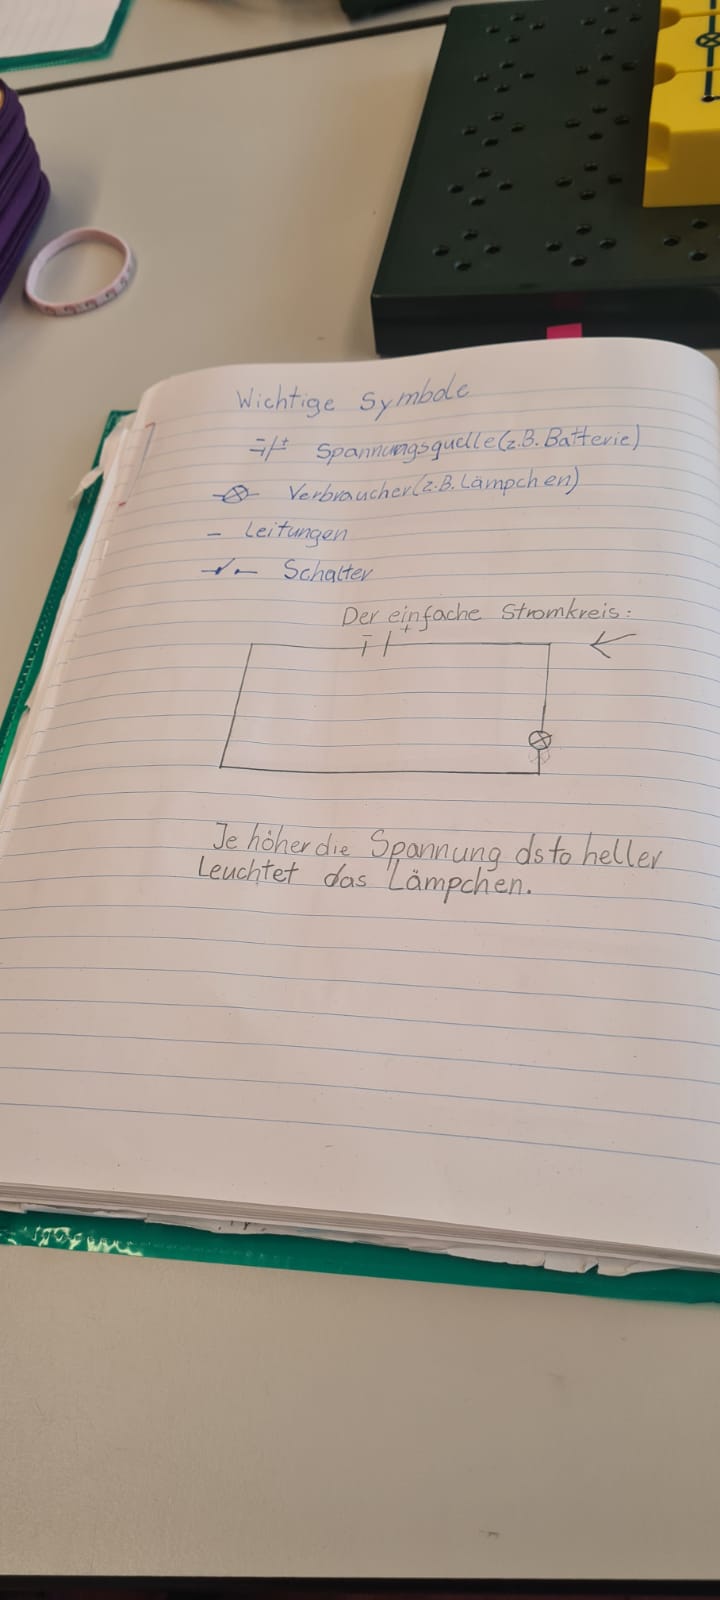 Wichtige Symbole
- + Spannungsquelle (z.B. Batterie)
Verbraucher (z.B. Lämpchen)
- Leitungen
Schalter
Der einfache Stromkreis:
- +
Je höher die Spannung dsto heller
Leuchtet das Lämpchen.